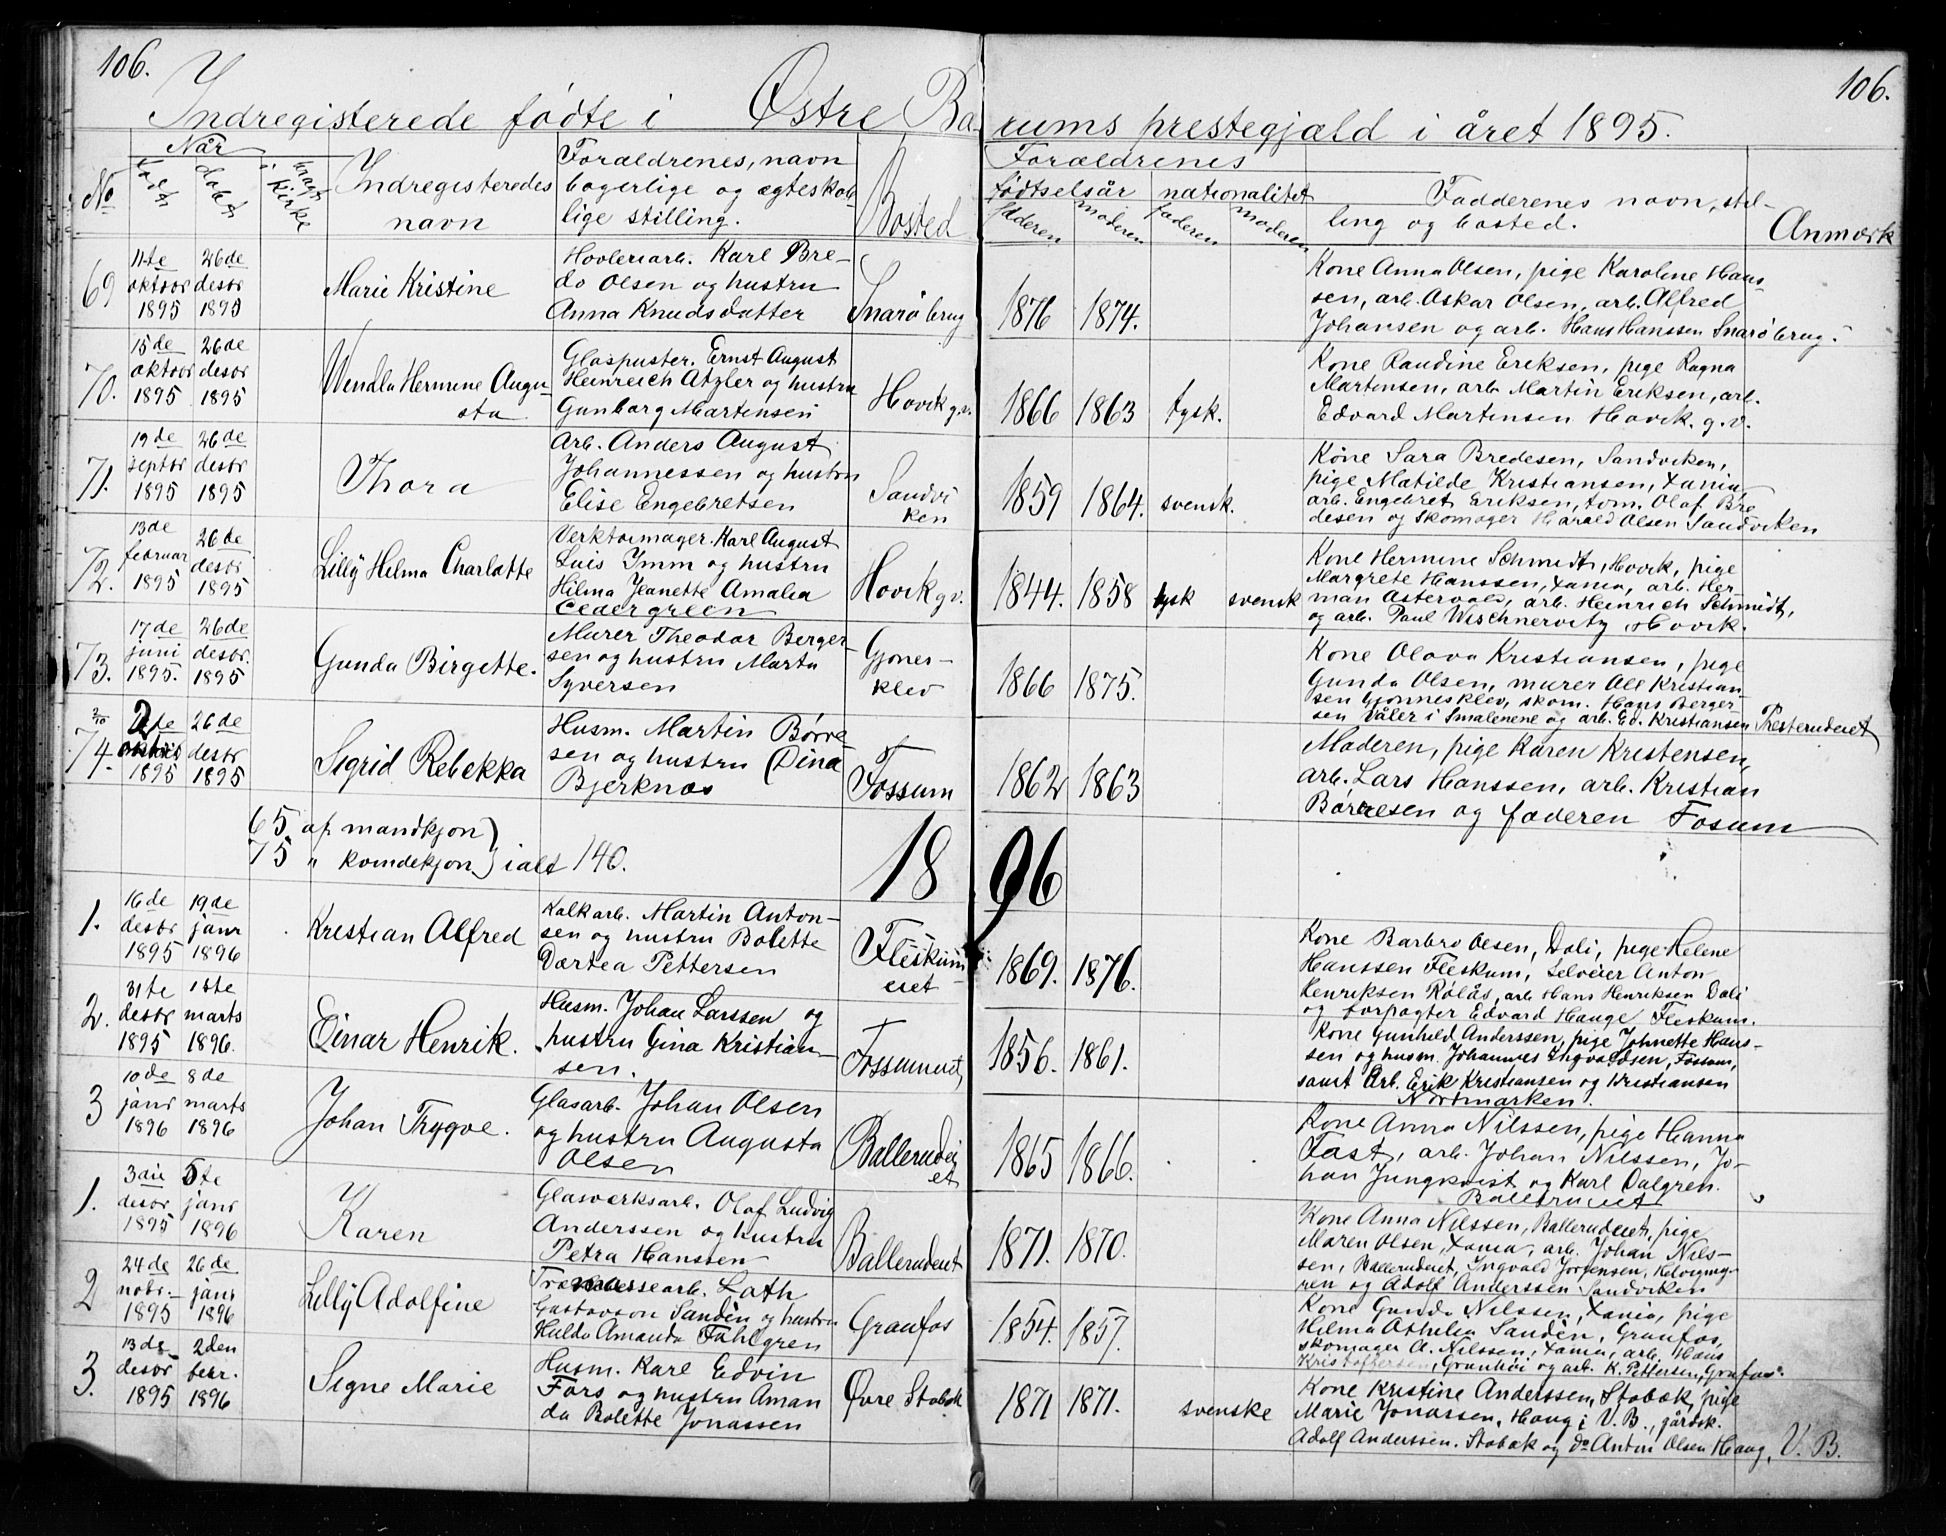 106.
106.
Indregisterede fødte i Østre Bærums prestegjæld i året 1895.
No
Når
født
døbt
bragt i kirke
Indregisteredes navn
Forældrenes, navn
bogerlige og ægteskab-
lige stilling.
Bosted
Forældrenes
fødtselsår
nationalitet
faderen
moderen
faderen
moderen
Fadderenes navn, stil-
ling og bosted.
Anmærk
69
11te oktobr 1895
26de desbr 1895
Marie Kristine
Hovleriarb. Karl Bre-
do Olsen og hustru
Anna Knudsdatter
Snarøbrug
1876
1874.
Kone Anna Olsen, pige Karoline Hans-
sen, arb. Oskar Olsen, arb. Alfred
Johansen og arb. Hans Hanssen Snarøbrug.
70.
15de oktobr 1895
26de desbr 1895
Wendla Hermine Augu-
sta
Glaspuster. Ernst August
Heinreich Atzler og hustru
Gunborg Martensen
Høvik g.v.
1866
1863
tysk.
Kone Randine Eriksen, pige Ragna
Martensen, arb Martin Eriksen, arb.
Edvard Martensen Høvik. g.v.
71.
19de septbr 1895
26de desbr 1895
Thora
Arb. Anders August
Johannessen og hustru
Elise Engebretsen
Sandvi
ken
1859
1864.
svensk.
Kone Sara Bredesen, Sandviken,
pige Matilde Kristiansen, Xania,
arb. Engebret Eriksen, tom. Olaf Bre
desen og skomager Harald Olsen Sandviken
72.
13de februar 1895
26de desbr 1895
Lilly Helma Charlotte
Verktøimager. Karl August
Luis Imm og hustru
Hilma Jeanette Amalia
Cedergreen
Høvik g.v.
1844.
1858
tysk
svensk
Kone Hermine Schmidt, Høvik, pige
Margrete Hanssen, Xania, arb. Her-
man Ostervold, arb. Heinrich Schmidt,
og arb. Paul Wischnervity, Høvik.
73.
17de juni 1895.
26de desbr. 1895
Gunda Birgitte.
Murer Theodor Berger-
sen og hustru Marta
Syversen
Gjønes-
klev
1866
1875.
Kone Olava Kristiansen, pige
Gunda Olsen, murer Ole Kristian-
sen Gjønnesklev, skom. Hans Berger
sen Våler i Smalenene og arb. Ed. Kristiansen Presterudeiet
2/10
74.
2 oktobr 1895
26de desbr 1895
Sigrid Rebekka
Husm. Martin Børre-
sen og hustru Dina
Bjerknæs
Fossum
1862
1863
Moderen, pige Karen Kristensen,
arb. Lars Hanssen, arb. Kristian
Børresen og faderen Fosum
65 af mandkjøn)
75 " kvindekjøn) ialt 140.
1896
1.
16de desbr 1895
19de janr 1896
Kristian Alfred
Kalkarb. Martin Anton-
sen og hustru Bolette
Dortea Pettersen
Fleskum
eiet
1869.
1876.
Kone Barbro Olsen, Dali, pige Helene
Hanssen Fleskum, selveier Anton
Henriksen Rølås, arb Hans Henriksen Dali
og forpagter Edvard Hauge Fleskum.
2.
31te desbr 1895
1ste marts 1896.
Einar Henrik.
Husm. Johan Larssen og
hustru Gina Kristian-
sen.
Fossumeiet,
1856.
1861.
Kone Gunhild Anderssen, pige Johnette Hans-
sen og husm. Johannes Ingvaldsen, Fossum,
samt Arb. Erik Kristiansen og Kristiansen
Nordmarken.
3
10de janr 1896
8de marts 1896
Johan Trygve.
Glasarb. Johan Olsen
og hustru Augusta
Olsen
Ballerudei
et
1865
1866.
Kone Anna Nilssen, pige Hanna
Fast, arb. Johan Nilssen, Jo-
han Jungkvist og Karl Dalgren.
Ballerudeiet
1.
3die desbr 1895
5te janr 1896
Karen
Glasverksarb. Olaf Ludvig
Anderssen og hustru
Petra Hanssen
Ballerudeiet
1871.
1870.
Kone Anna Nilssen, Ballerudeiet, pige
Maren Olsen, Xania, arb. Johan Nils-
sen, Ballerudeiet, Ingvald Jørgensen,
ren og Adolf Anderssen Sandviken
2
24de nobr. 1895
26de janr 1896
Lilly Adolfine
Træmassearb. Lath
Gustavson Sandèn og hustru
Hulda Amanda Fahlgren
Granfos
1854.
1857.
Kone Gunda Nilssen, Xania, pige
Hilma Athelia Sandèn, Granfos,
skomager A. Nilssen, Xania, arb. Hans
Kristoffersen, Granhøi og arb. K. Pettersen, Granfos.
3.
13de desbr 1895
2den febr. 1896
Signe Marie
Husm. Karl Edvin
Fors og hustru Aman
da Bolette Jonassen
Øvre Stabæk
1871
1871.
svenske
Kone Kristine Anderssen, Stabæk, pige
Marie Jonassen, Haug i V.B., gårdsk.
Adolf Anderssen. Stabæk og do Anton Olsen Haug, V. B.